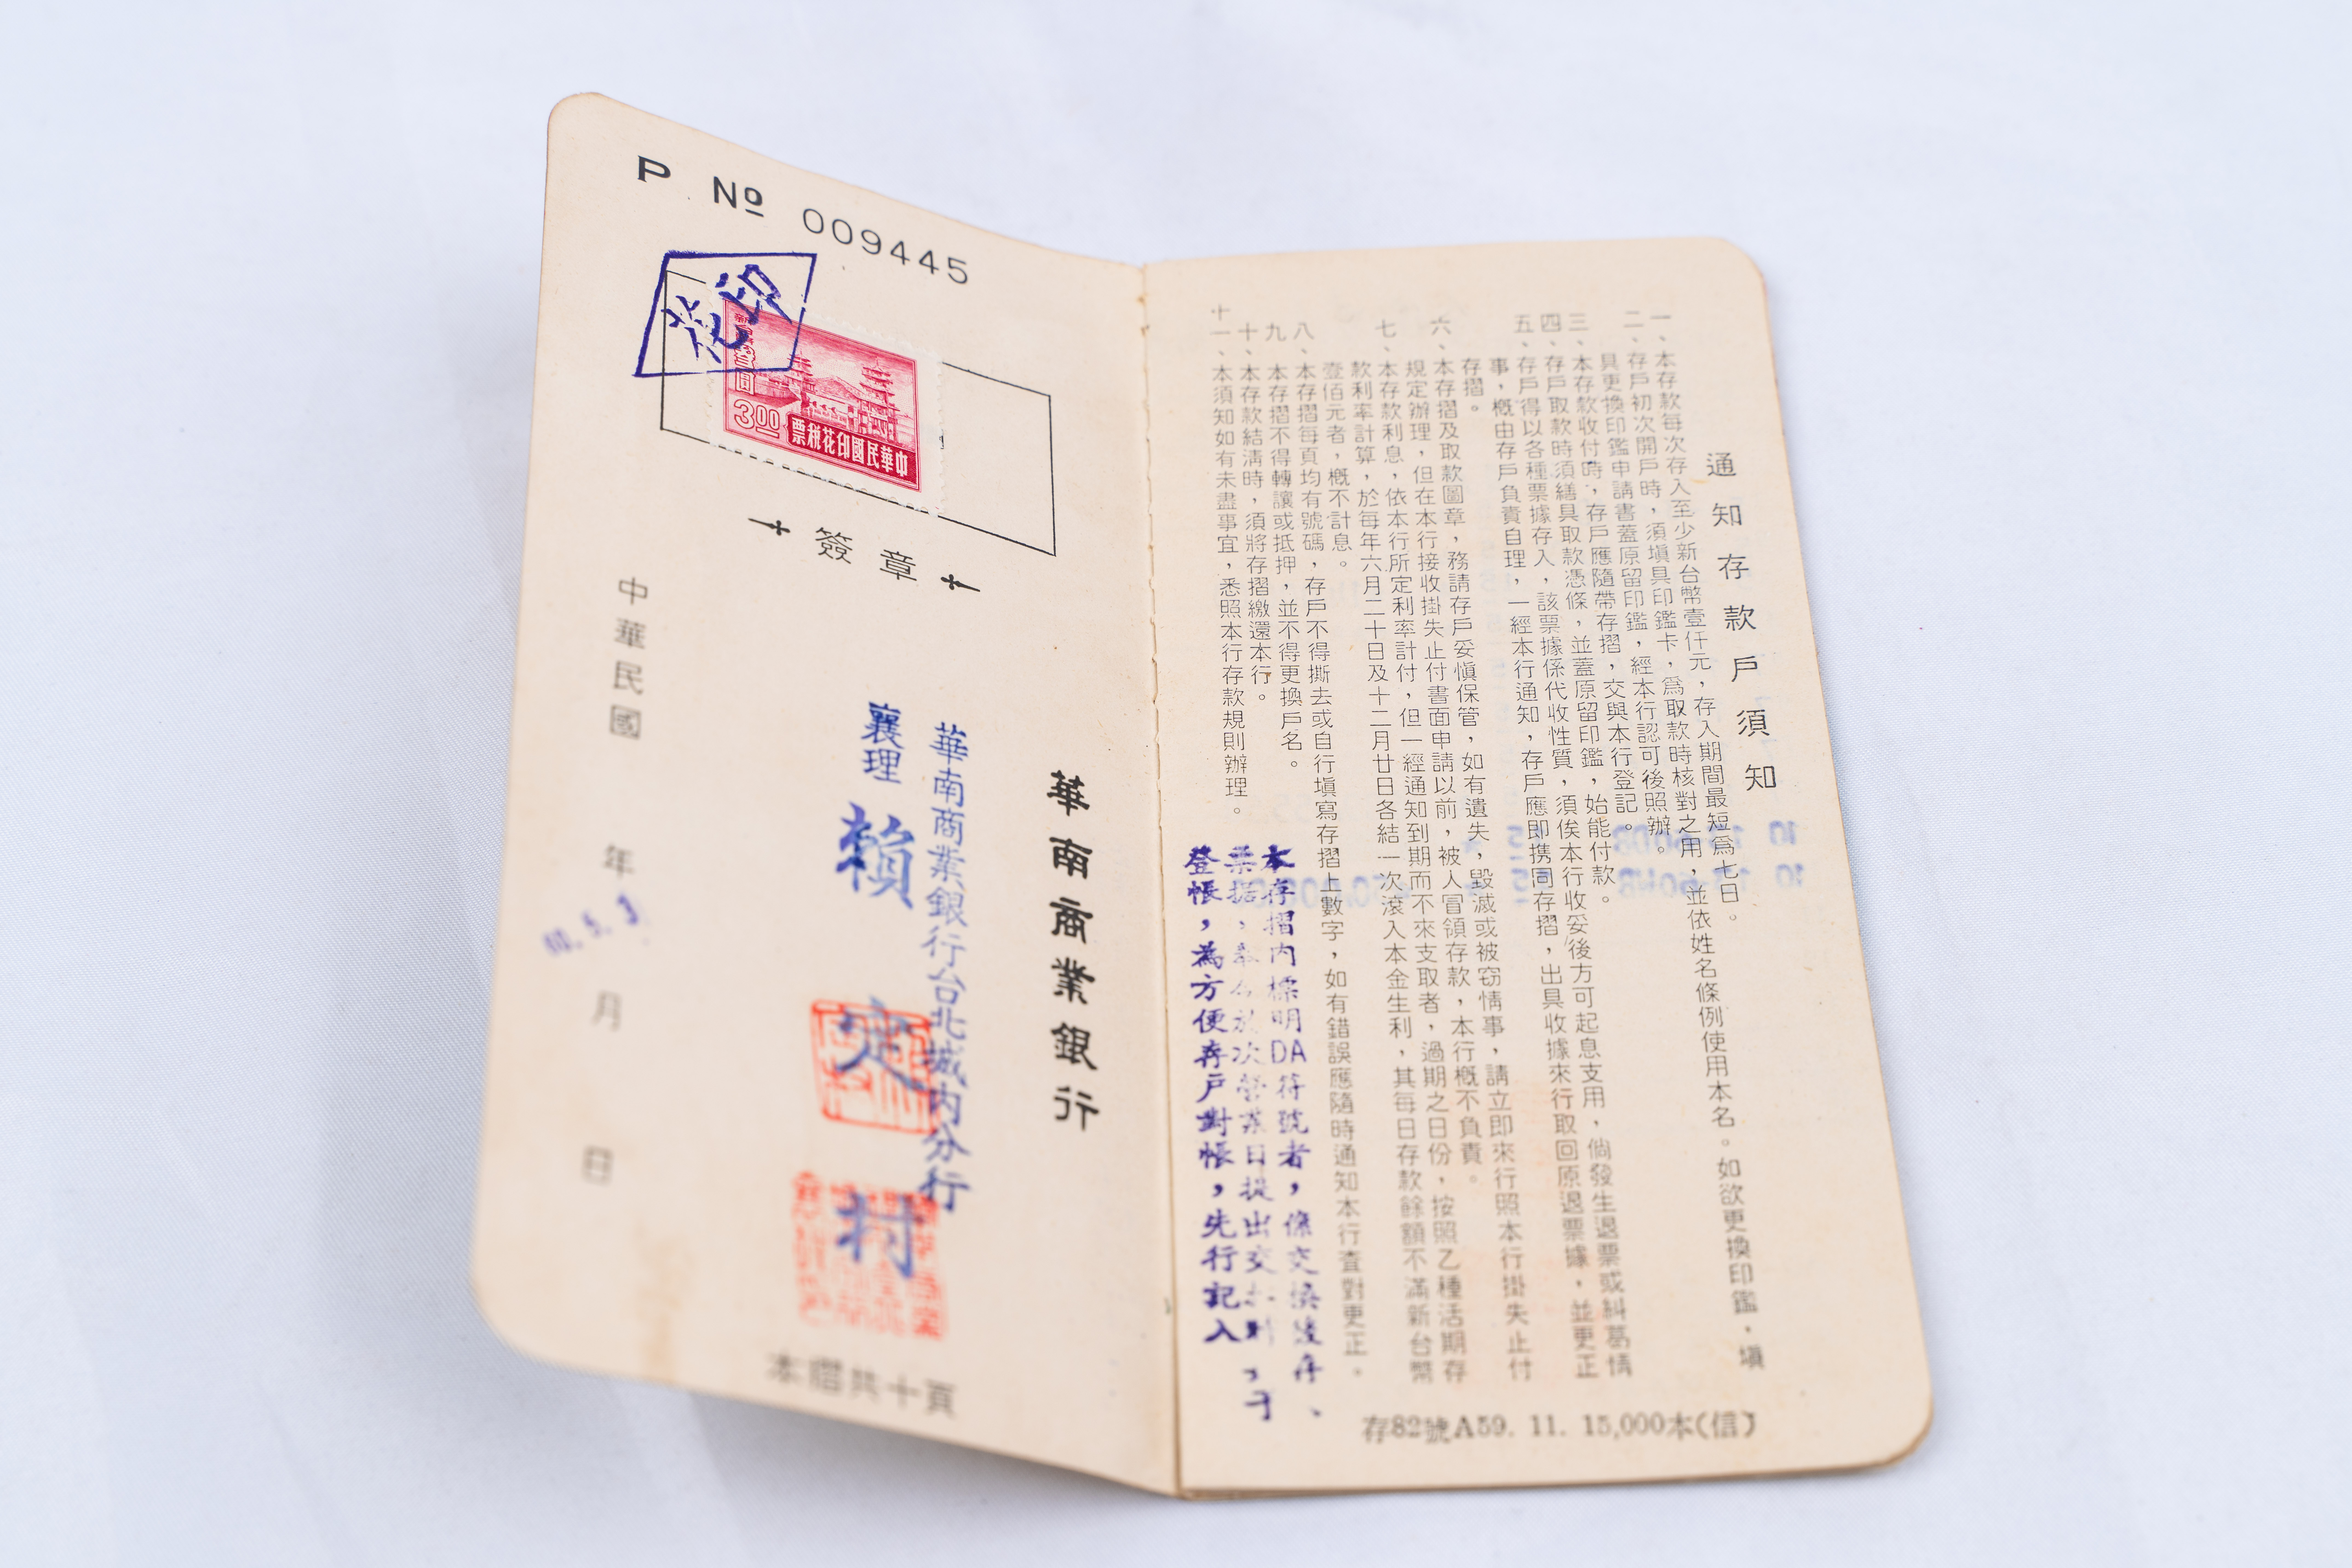 P № 009445
印花
新臺幣參圓
3.00
中華民國印花稅票
簽章
華南商業銀行
華南商業銀行台北城內分行
襄理 賴定村
中華民國 年 月 日
本摺共十頁
通知存款戶須知
一、本存款每次存入至少新台幣壹仟元，存入期間最短爲七日。
二、存戶初次開戶時，須塡具印鑑卡，爲取款時核對之用，並依姓名條例使用本名。如欲更換印鑑，塡
具更換印鑑申請書蓋原留印鑑，經本行認可後照辦。
三、本存款收付時，存戶應隨帶存摺，交與本行登記。
四、存戶取款時須繕具取款憑條，並蓋原留印鑑，始能付款。
五、存戶得以各種票據存入，該票據係代收性質，須俟本行收妥後方可起息支用，倘發生退票或糾葛情
事，概由存戶負責自理，一經本行通知，存戶應即携同存摺，出具收據來行取回原退票據，並更正
存摺。
六、本存摺及取款圖章，務請存戶妥愼保管，如有遺失，毀滅或被窃情事，請立即來行照本行掛失止付
規定辦理，但在本行接收掛失止付書面申請以前，被人冒領存款，本行概不負責。
七、本存款利息，依本行所定利率計付，但一經通知到期而不來支取者，過期之日份，按照乙種活期存
款利率計算，於每年六月二十日及十二月廿日各結一次滾入本金生利，其每日存款餘額不滿新台幣
壹佰元者，概不計息。
八、本存摺每頁均有號碼，存戶不得撕去或自行塡寫存摺上數字，如有錯誤應隨時通知本行查對更正。
九、本存摺不得轉讓或抵押，並不得更換戶名。
十、本存款結淸時，須將存摺繳還本行。
十一、本須知如有未盡事宜，悉照本行存款規則辦理。
本存摺內標明DA符號者，係交換
票據，
次營業日提出交
登帳，為方便存戶對帳，先行記入
存82號A59. 11. 15,000本(信)